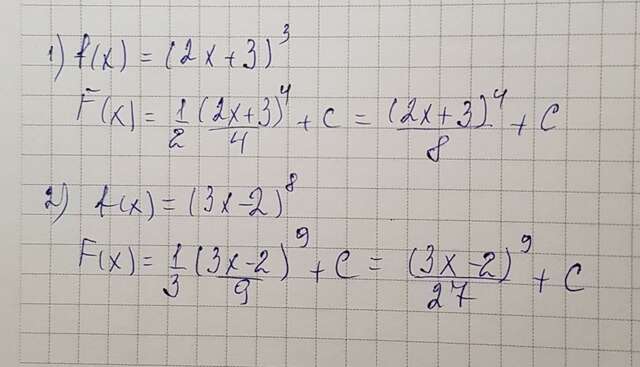 1) f(x) = (2x+3)^3
F(x) = 1/2 (2x+3)^4/4 + C = (2x+3)^4/8 + C
2) f(x) = (3x-2)^8
F(x) = 1/3 (3x-2)^9/9 + C = (3x-2)^9/27 + C